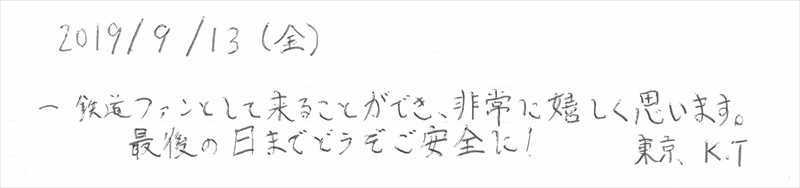 2019/9/13(金)
一鉄道ファンとして来ることができ、非常に嬉しく思います。
最後の日までどうぞご安全に!
東京、K.T